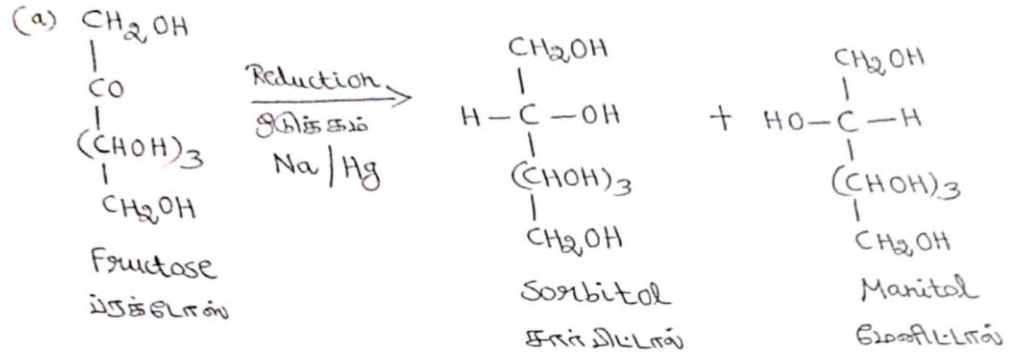 (a) CH₂OH
|
CO
|
(CHOH)₃
|
CH₂OH
Fructose
ப்ரக்டோஸ்
Reduction
ஒடுக்கம்
Na | Hg
CH₂OH
|
H – C – OH
|
(CHOH)₃
|
CH₂OH
Sorbitol
சார்பிட்டால்
+
CH₂OH
|
HO – C – H
|
(CHOH)₃
|
CH₂OH
Manitol
மேனிட்டால்